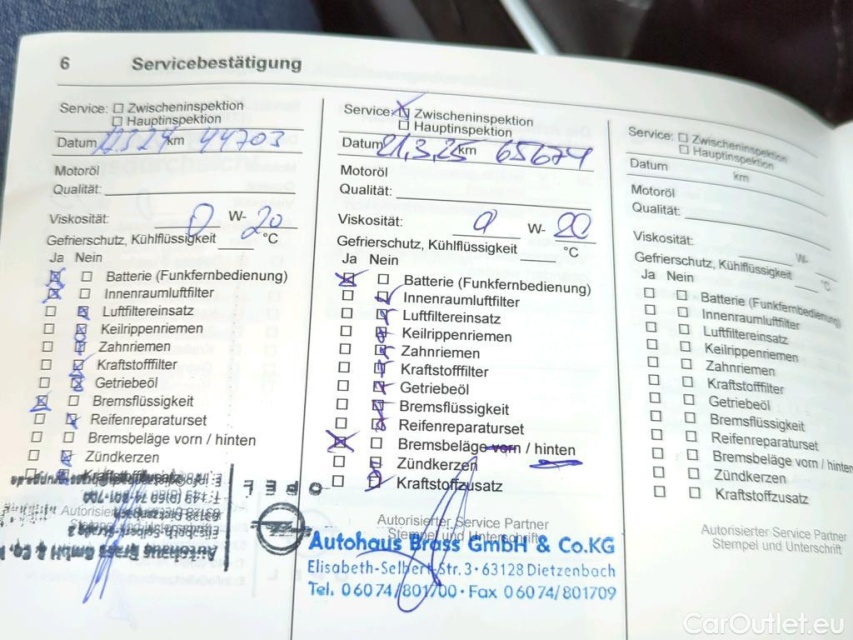 6 Servicebestätigung
Service: Zwischeninspektion
Hauptinspektion
Datum km 44703
Motoröl
Qualität:
Viskosität: 0 W- 20
Gefrierschutz, Kühlflüssigkeit °C
Ja Nein
Batterie (Funkfernbedienung)
Innenraumluftfilter
Luftfiltereinsatz
Keilrippenriemen
Zahnriemen
Kraftstofffilter
Getriebeöl
Bremsflüssigkeit
Reifenreparaturset
Bremsbeläge vorn / hinten
Zündkerzen
Kraftstoffzusatz
OPEL
Service: Zwischeninspektion
Hauptinspektion
Datum 21,3,25 km 65674
Motoröl
Qualität:
Viskosität: 0 W- 20
Gefrierschutz, Kühlflüssigkeit °C
Ja Nein
Batterie (Funkfernbedienung)
Innenraumluftfilter
Luftfiltereinsatz
Keilrippenriemen
Zahnriemen
Kraftstofffilter
Getriebeöl
Bremsflüssigkeit
Reifenreparaturset
Bremsbeläge vorn / hinten
Zündkerzen
Kraftstoffzusatz
Autorisierter Service Partner
Stempel und Unterschrift
Autohaus Brass GmbH & Co.KG
Elisabeth-Selbert-Str. 3 · 63128 Dietzenbach
Tel. 06074/801700 · Fax 06074/801709
Service: Zwischeninspektion
Hauptinspektion
Datum km
Motoröl
Qualität:
Viskosität: W-
Gefrierschutz, Kühlflüssigkeit °C
Ja Nein
Batterie (Funkfernbedienung
Innenraumluftfilter
Luftfiltereinsatz
Keilrippenriemen
Zahnriemen
Kraftstofffilter
Getriebeöl
Bremsflüssigkeit
Reifenreparaturset
Bremsbeläge vorn / hinten
Zündkerzen
Kraftstoffzusatz
Autorisierter Service Partner
Stempel und Unterschrift
CarOutlet.eu